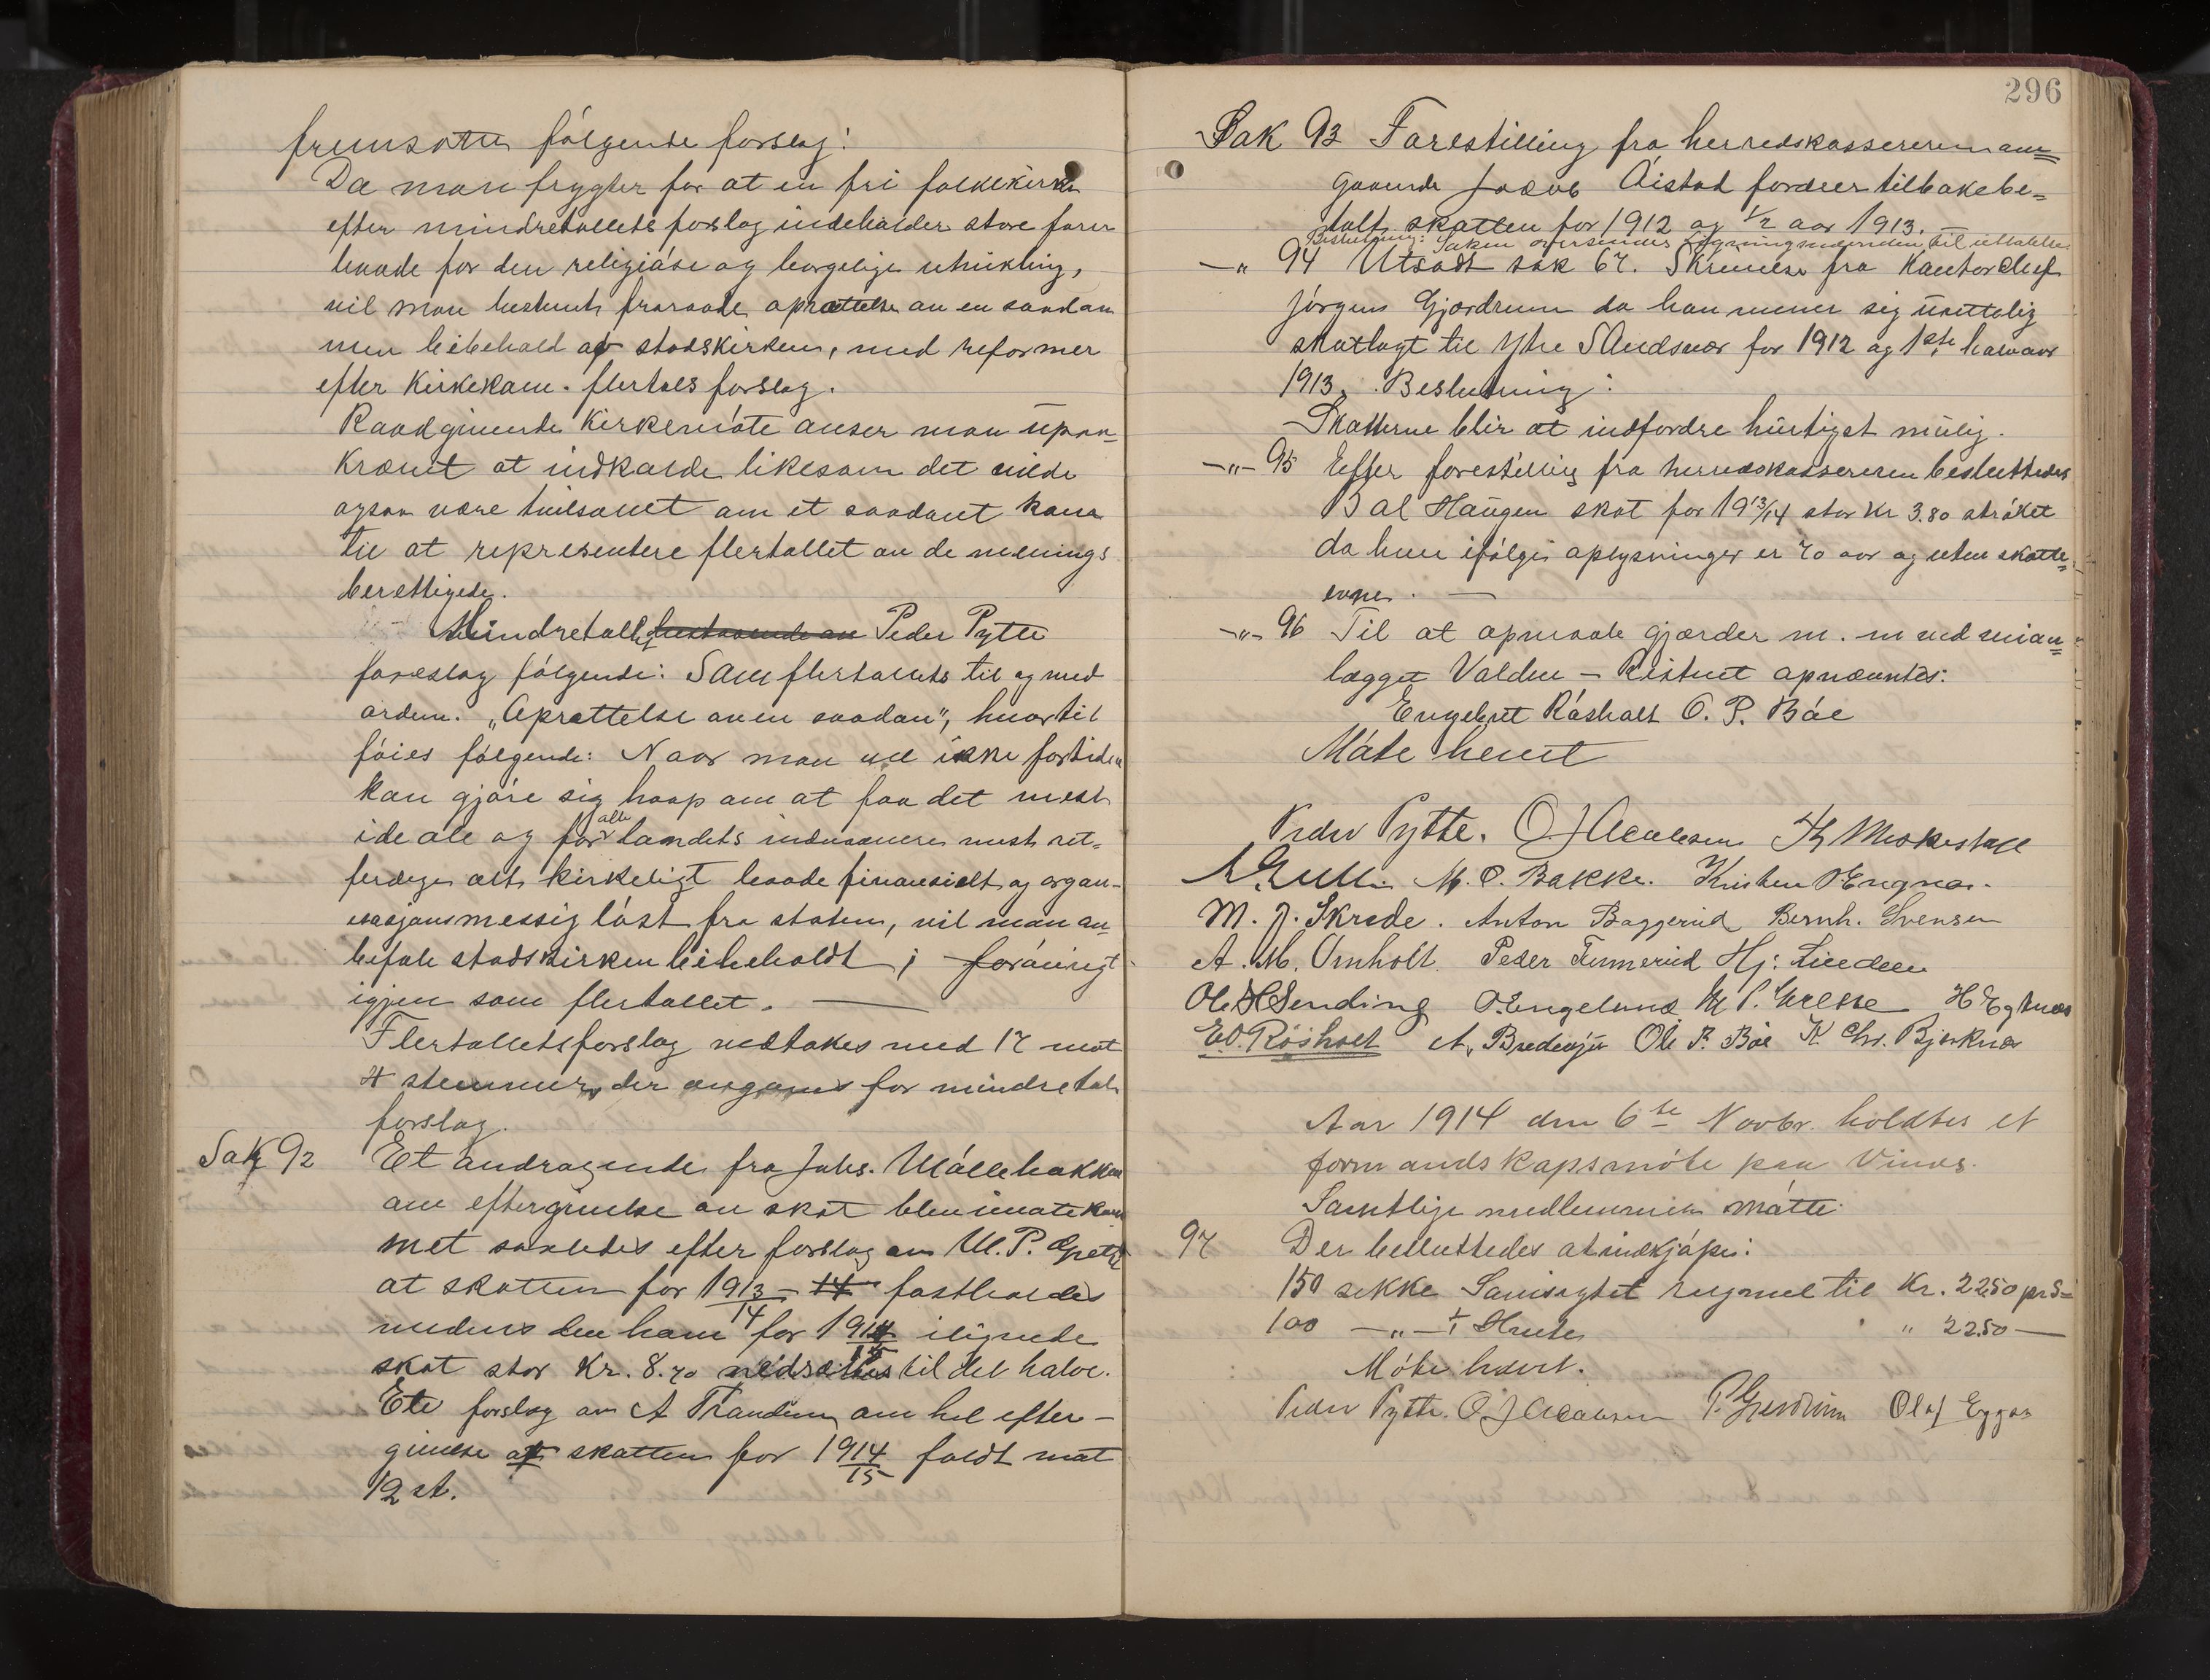 fremsatte følgende forslag:
Da man frygter for at en fri folkekirke
efter mindretallets forslag indeholder store farer
baade for den religiøse og borgelige utvikling,
vil man bestemt fraraade oprættelse av en saadan
men bibehold af statskirken, med reformer
efter Kirkekom. flertals forslag.
Raadgivende Kirkemøte anser man upaa-
krævet at indkalde likesom det vilde
ogsaa være tvilsomt om et saadant kom
til at representere flertallet av de menings
berettigede.
Mindretallet bestaaende av Peder Pytte
foreslog følgende: Som flertallets til og med
ordene: „Oprettelse av en saadan", hvortil
føies følgende: Naar man vel ikke for tiden
kan gjøre sig haap om at faa det mest
ideale og for alle landets indvaanere mest ret-
ferdige alt kirkeligt baade finansielt og organ-
isasjonsmessig løst fra staten, vil man an-
befale statskirken bibeholdt; forøvrigt
igjen som flertallet. —
Flertalletsforslag vedtokes med 17 mot
4 stemmer, der avgaves for mindretal
forslag.
Sak 92 Et andragende fra Johs. Møllebakken
om eftergivelse av skat blev imøtekom
met saaledes efter forslag av M. P.
at skatten for 1913/14 - 14 fastholdes
medens den ham for 1914/15 ilignede
skat stor Kr. 8.70 nedsættes til det halve.
Ete forslag av A Trandum om hel efter-
givelse af skatten for 1914/15 faldt mot
12 st.
296
Sak 93 Forestilling fra herredskassereren an=
gaaende Jacob Øistad fordrer tilbakebe=
talt skatten for 1912 og 1/2 aar 1913. —
Beslutning: Saken oversendes Ligningsnevnden til uttalelse
—"— 94 Utsadt sak 67. Skrivelse fra Kantorchef
Jørgen Gjordrum da han mener sig urettelig
skatlagt til Ytre SAndsvær for 1912 og 1ste halvaar
1913. Beslutning:
Skatterne blir at indfordre hurtigst mulig.
—"— 95 Efter forestilling fra herredskassereren besluttedes
Bol Haugen skat for 1913/14 stor Kr 3.80 strøket
da hun ifølge oplysninger er 70 aar og uten skatte=
evne. —
—"— 96 Til at opmaale gjærder m. m ved veian=
lægget Valdne – Kistuet opnævntes:
Engebret Røsholt O. P. Bøe
Møte hevet
Peder Pytte. O J Th Moskestad
M. O. Bakke. Kristen O Engnæs.
M. J. Skrede. Anton Baggerud Bernh. Svensen
A. M. Omholt. Peder Tummerud Hj: Lindem
Ole H Sending O. Engelund M P. H Egknæs
E. O. Røsholt A. Ole P. Bøe K Chr. Bjerknæs
Aar 1914 den 6te Novbr. holdtes et
formandskapsmøte paa Vinæs.
Samtlige medlemmer møtte.
97 Der besluttedes at indkjøpe:
150 sekke Samsigtet rugmel til Kr. 22.50 pr S=
100 —"— Hvete " 22.50 —
Møte hævet.
Peder Pytte. O J P. Gjerdrum Olaf Eggen